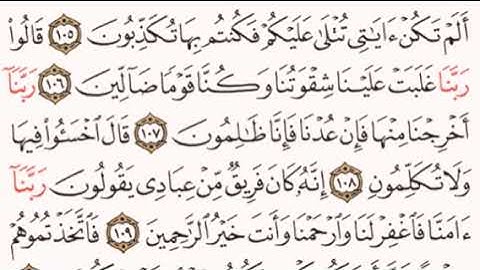 أَلَمْ تَكُنْ ءَايَٰتِى تُتْلَىٰ عَلَيْكُمْ فَكُنتُم بِهَا تُكَذِّبُونَ ١٠٥ قَالُوا۟
رَبَّنَا غَلَبَتْ عَلَيْنَا شِقْوَتُنَا وَكُنَّا قَوْمًا ضَآلِّينَ ١٠٦ رَبَّنَآ
أَخْرِجْنَا مِنْهَا فَإِنْ عُدْنَا فَإِنَّا ظَٰلِمُونَ ١٠٧ قَالَ ٱخْسَـُٔوا۟ فِيهَا
وَلَا تُكَلِّمُونِ ١٠٨ إِنَّهُۥ كَانَ فَرِيقٌ مِّنْ عِبَادِى يَقُولُونَ رَبَّنَآ
ءَامَنَّا فَٱغْفِرْ لَنَا وَٱرْحَمْنَا وَأَنتَ خَيْرُ ٱلرَّٰحِمِينَ ١٠٩ فَٱتَّخَذْتُمُوهُمْ